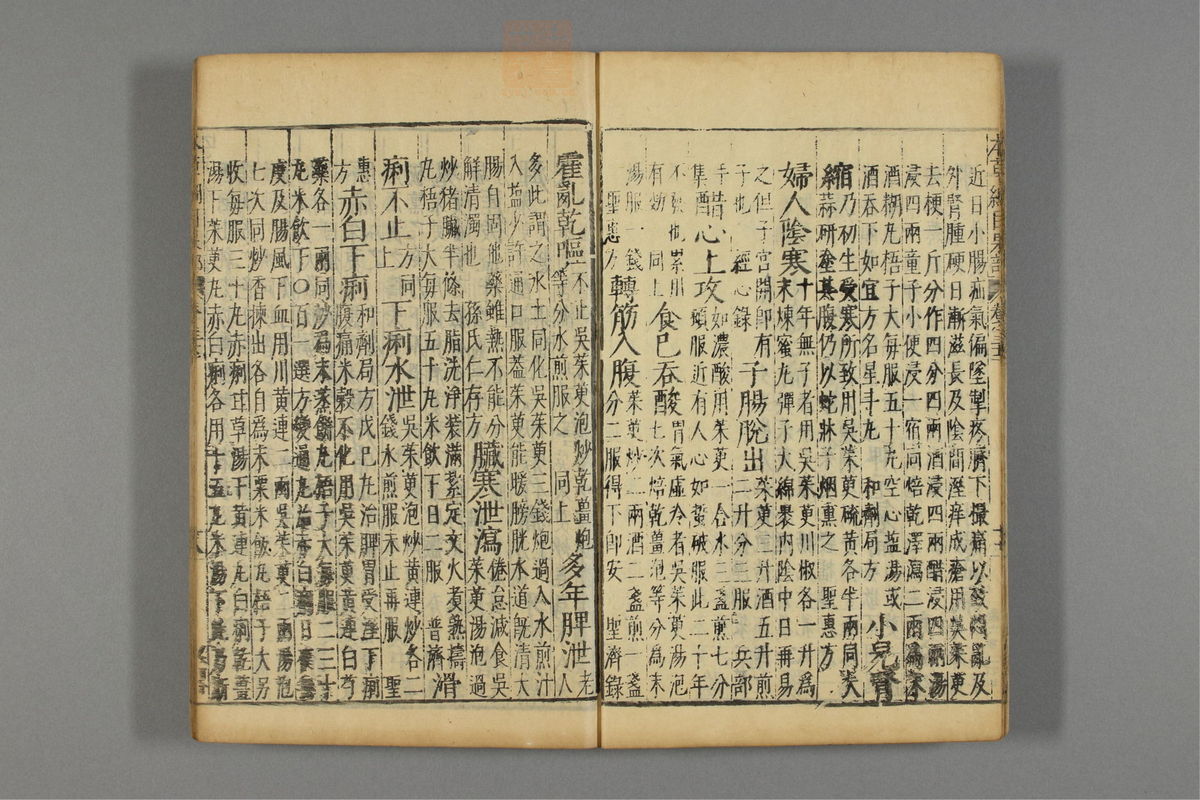 近日小腸疝氣偏墜掣疼臍下撮痛以致悶亂及
外腎腫硬日漸滋長及陰間溼痒成瘡用吳茱萸
去梗一斤分作四分四兩酒浸四兩醋浸四兩湯
浸四兩童子小便浸一宿同焙乾澤瀉二兩為末
酒糊丸梧子大每服五十丸空心盐湯或
酒吞下如宜方名星斗丸 和劑局方
小兒腎
縮
乃初生受寒所致用吳茱萸硫黃各半兩同大
蒜研塗其腹仍以蛇牀子烟熏之 聖惠方
婦人陰寒
十年無子者用吳茱萸川椒各一升為
末煉蜜丸彈子大綿裹內陰中日再易
之但子宮開即有
子也 經心錄
子腸脫出
茱萸三升酒五升煎
二升分三服 兵部
手
集
醋心上攻
如濃酸用茱萸一合水三盞煎七分
頓服近有人心如蜇破服此二十年
不發也累用
有効 同上
食已吞酸
胃氣虛冷者吳茱萸湯泡
七次焙乾薑泡等分為末
湯服一錢
聖惠方
轉筋入腹
茱萸炒二兩酒二盞煎一盞
分二服得下即安 聖濟錄
霍亂乾嘔
不止吳茱萸泡炒乾薑炮
等分水煎服之 同上
多年脾泄
老
人
多此謂之水土同化吳茱萸三錢炮過入水煎汁
入盐少許通口服蓋茱萸能暖膀胱水道既清大
腸自固他藥雖熱不能分
解清濁也 孫氏仁存方
臟寒泄瀉
倦怠減食吳
茱萸湯泡過
炒猪臟半條去脂洗淨裝滿紮定文火煮熟擣
丸梧子大每服五十丸米飲下日二服 普濟
滑
痢不止
方同
上
下痢水泄
吳茱萸泡炒黃連炒各二
錢水煎服未止再服 聖
惠
方
赤白下痢
和劑局方戊己丸治脾胃受溼下痢
腹痛米穀不化用吳茱萸黃連白芍
藥各一兩同炒為末蒸餅丸梧子大每服二三十
丸米飲下○百一選方變通丸治赤白痢日夜無
度及腸風下血用川黃連二兩吳茱萸二兩湯泡
七次同炒香揀出各自為末粟米飯丸梧子大另
收每服三十丸赤痢甘草湯下黃連丸白痢乾薑
湯下茱萸丸赤白痢各用十五丸米湯下